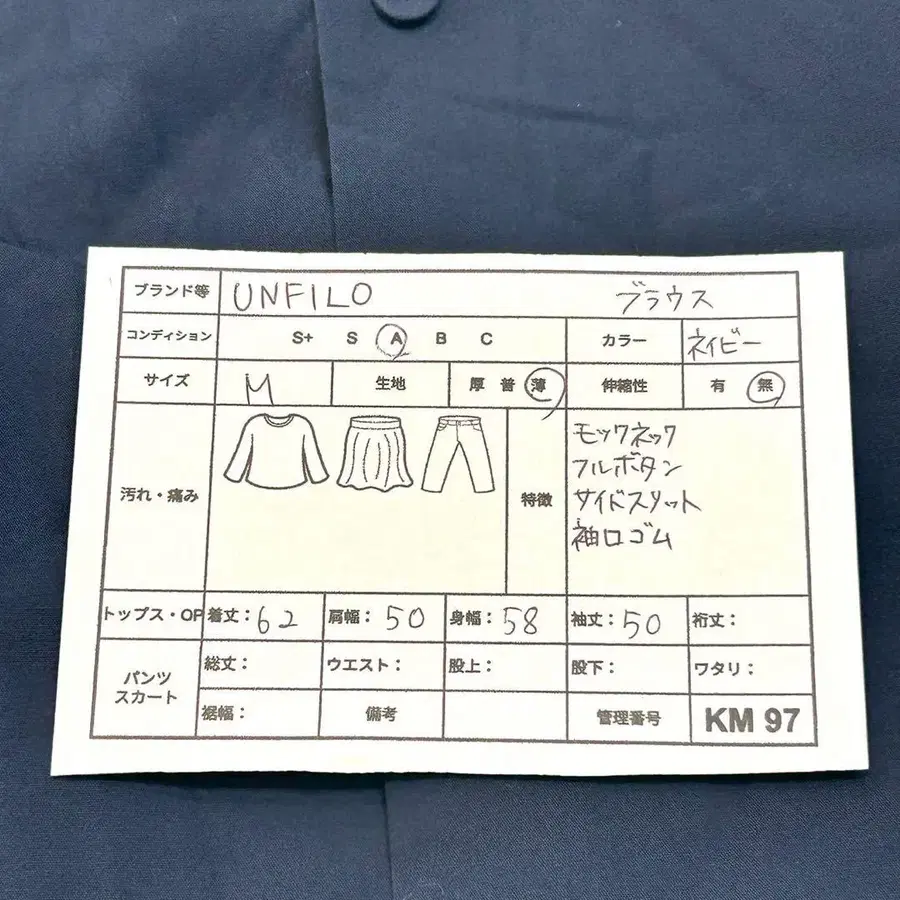 ブランド等 UNFILO ブラウス
コンディション S+ S A B C カラー ネイビー
サイズ M 生地 厚 普 薄 伸縮性 有 無
汚れ・痛み 特徴
モックネック
フルボタン
サイドスリット
袖口ゴム
トップス・OP 着丈：62 肩幅：50 身幅：58 袖丈：50 裄丈：
パンツ
スカート
総丈： ウエスト： 股上： 股下： ワタリ：
裾幅： 備考 管理番号 KM 97